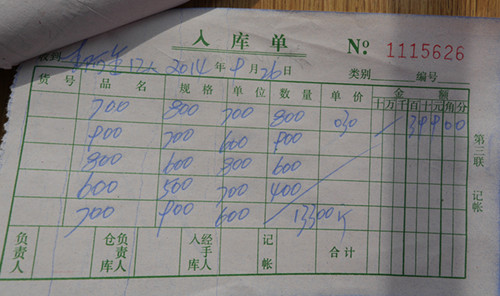 入库单
No 1115626
收到 2014年9月26日 类别 编号
货号 品名 规格 单位 数量 单价 金额
十万千百十元角分
700 800 700 800 030 39900
900 700 600 900
800 600 800 600
600 500 700 400
700 900 600 13300斤
第三联 记帐
负责人 仓库负责人 入库经手人 记帐 合计